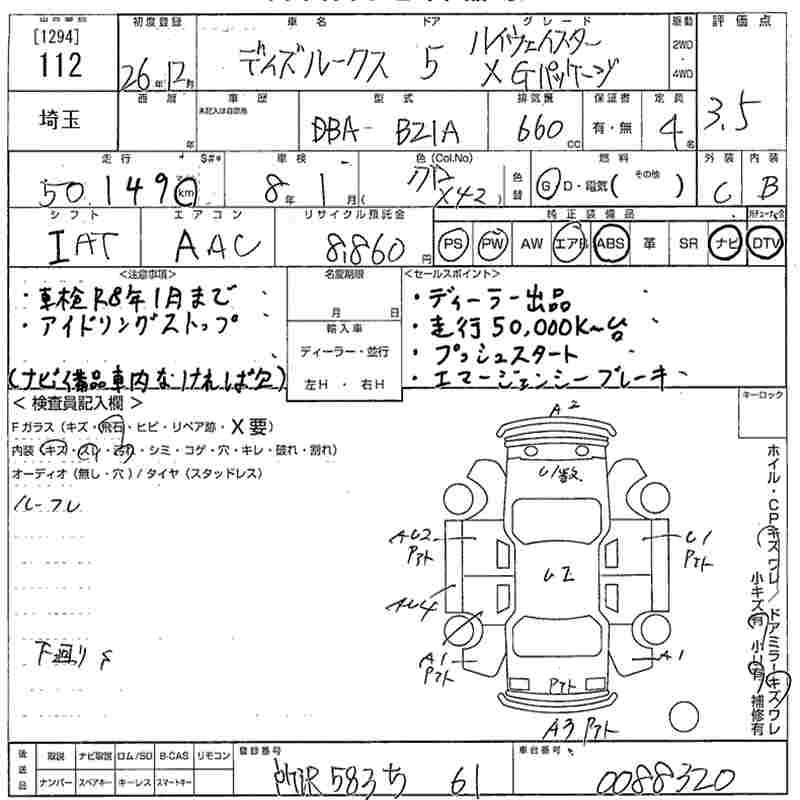 [1294]
112
初度登録
26年12月
車名
デイズルークス
ドア
5
グレード
ハイウェイスター
X Gパッケージ
駆動
2WD
・
4WD
評価点
3.5
埼玉
西暦
年
車歴
未記入は自家用
型式
DBA- B21A
排気量
660 CC
保証書
有・無
定員
4名
走行
50,149 km
$#*
車検
8年1月
色(Col.No)
(X42)
色替
燃料
G・D・電気( その他 )
外装
C
内装
B
シフト
IAT
エアコン
AAC
リサイクル預託金
8,860円
純正装備品
PS PW AW エアB ABS 革 SR ナビ DTV
<注意事項>
・車検R8年1月まで
・アイドリングストップ
(ナビ備品車内なければ欠)
名変期限
月 日
輸入車
ディーラー・並行
左H ・ 右H
<セールスポイント>
・ディーラー出品
・走行50,000K~台
・プッシュスタート
・エマージェンシーブレーキ
キーロック
<検査員記入欄>
Fガラス(キズ・飛石・ヒビ・リペア跡・X要)
内装(キズ・スレ・汚れ・シミ・コゲ・穴・キレ・破れ・割れ)
オーディオ(無し・穴)/タイヤ(スタッドレス)
ルーフU
下廻りS
A2
U1数
AU2
アト
U1
アト
AU4
A1
アト
A1
アト
A3アト
ホイル・CP(キズ ワレ)/ドアミラー(キズ ワレ
小キズ有 小U有 補修有
後送品
取説 ナビ取説 ロム/SD B-CAS リモコン
ナンバー スペアキー キーレス スマートキー
登録番号
所沢 583 ち 61
車台番号
0088320